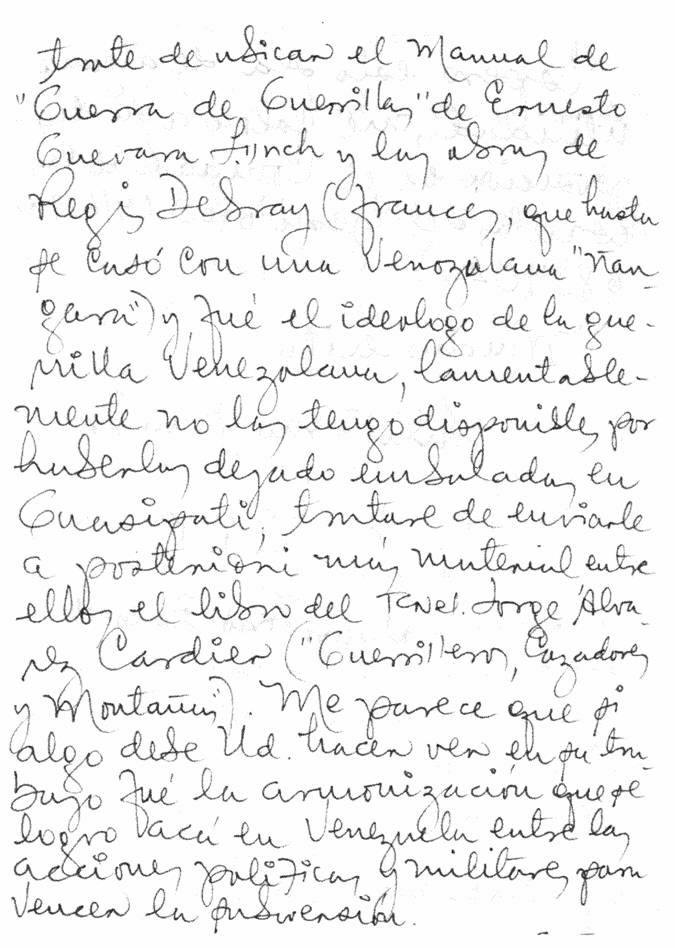 trate de ubicar el Manual de
"Guerra de Guerrillas" de Ernesto
Guevara Linch y las obras de
Regis Debray (frances, que hasta
se casó con una Venezolana "ñan-
gara") y fué el ideologo de la gue-
rrilla Venezolana, lamentable-
mente no las tengo disponibles, por
haberlas dejado embaladas en
Guasipati, tratare de enviarle
a posteriori más material entre
ellos el libro del TCnel. Jorge Alva-
rez Cardier ("Guerrilleros, Cazadores
y Montañas"). Me parece que si
algo debe Ud. hacer ver en su tra-
bajo fué la armonización que se
logro acá en Venezuela entre las
acciones politicas y militares para
vencer la subversión.